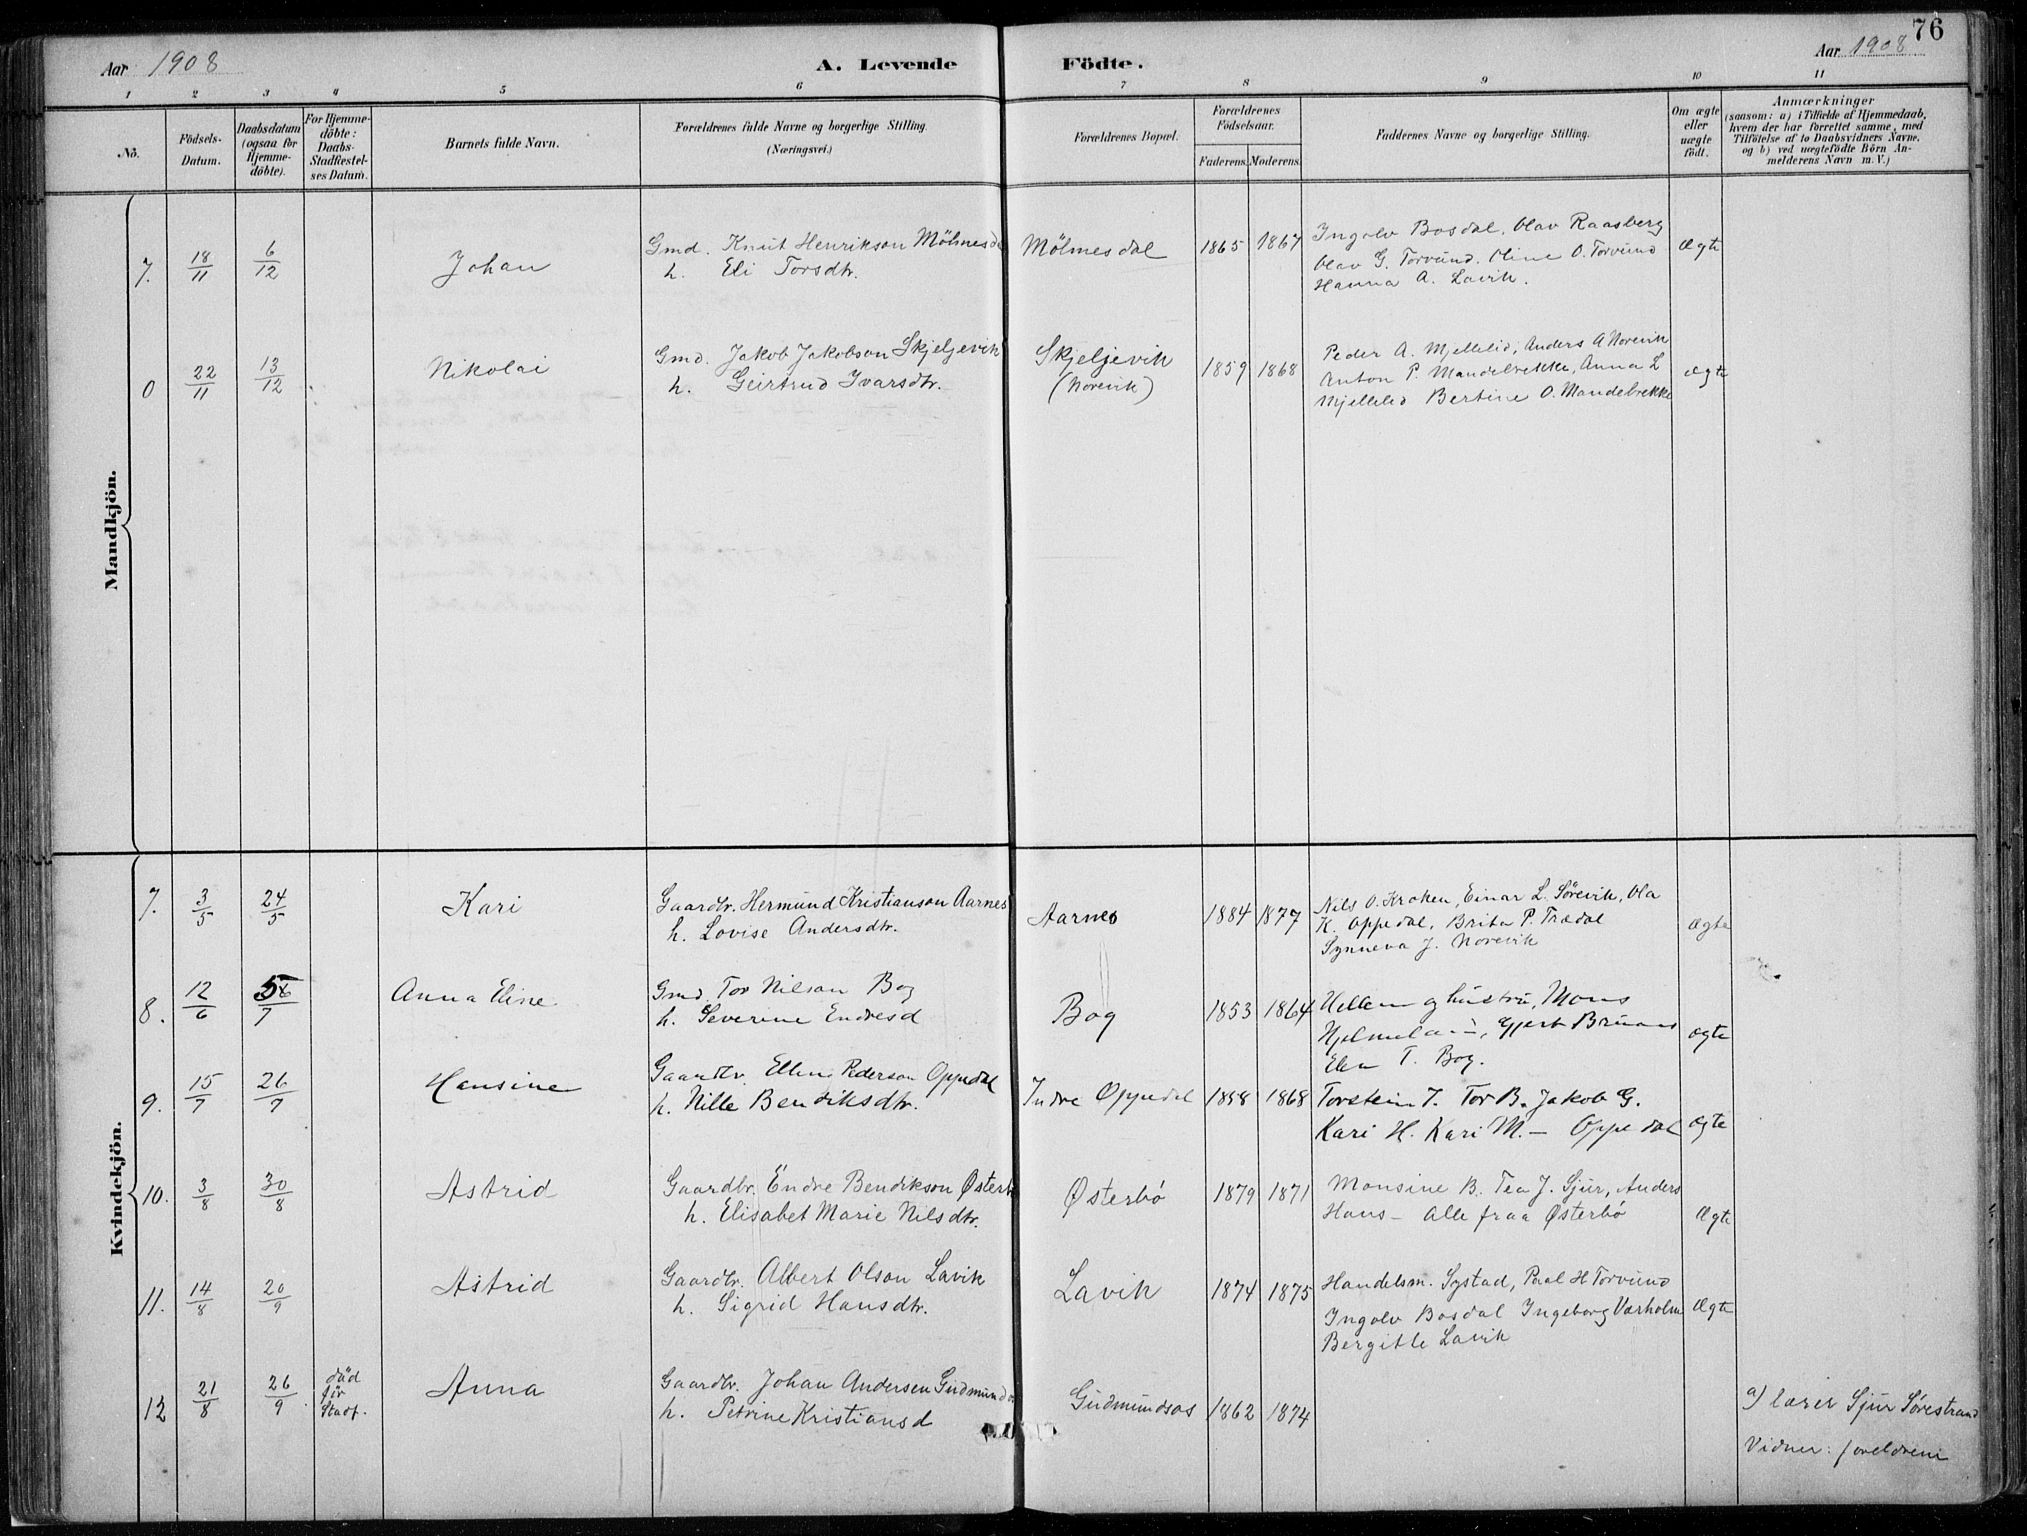 76
Aar 1908
A. Levende Födte.
Aar 1908
1 2 3 4 5 6 7 8 9 10 11
No.
Födsels-Datum.
Daabsdatum (ogsaa for Hjemme-döbte).
For Hjemme-döbte: Daabs-Stadfæstel-ses Datum.
Barnets fulde Navn.
Forældrenes fulde Navne og borgerlige Stilling. (Næringsvei.)
Forældrenes Bopæl.
Forældrenes Födselsaar.
Faderens. Moderens.
Faddernes Navne og borgerlige Stilling.
Om ægte eller uægte födt.
Anmærkninger
(saasom: a) i Tilfælde af Hjemmedaab,
hvem der har forrettet samme, med
Tilföielse af to Daabsvidners Navne,
og b) ved uægtefödte Börn An-
melderens Navn m. V.)
Mandkjön.
7. 18/11 6/12 Johan
Gmd. Knut Henrikson Mölmesda
h. Eli Torsdtr.
Mölmesdal 1865 1867
Ingolv Bosdal, Olav Raasberg
Olav G. Torvund. Oline O. Torvund
Hanna A. Lavik.
Ægte
0 22/11 13/12 Nikolai
Gmd. Jakob Jakobson Skjeljevik
h. Geirtrud Ivarsdtr.
Skjeljevik
(Norevik)
1859 1868
Peder A. Mjellelid, Anders A Norevik
Anton P. Mandelbrekke, Anna L
Mjellelid Bertine O. Mandelbrekke
ægte
Kvindekjön.
7. 3/5 24/5 Kari
Gaardbr. Hermund Kristianson Aarnes
h. Lovise Andersdtr.
Aarnes 1884 1877
Nils O. Kroken, Einar L. Sørevik, Ola
K. Oppedal, Brita P. Trædal
Synneva J. Norevik
ægte
8. 12/6 5/7 Anna Eline
Gmd. Tor Nilson Bog
h. Severine Endresd
Bog 1853 1864
og hustru, Mons
Gjert
T. Bog.
ægte
9. 15/7 26/7 Hansine
Gaardbr. Elling Pederson Oppedal
h. Nille Bendiksdtr.
Indre Oppedal 1858 1868
Torstein T. Tor B. Jakob G.
Kari H. Kari M. – Oppedal
ægte
10. 3/8 30/8 Astrid
Gaardbr. Endre Bendikson Østerb
h. Elisabet Marie Nilsdtr.
Østerbö 1879 1871
Monsine B. Tea J. Sjur, Anders
Hans – Alle fraa Østerbö
Ægte
11. 14/8 20/9 Astrid
Gaardbr. Albert Olson Lavik
h. Sigrid Hansdtr.
Lavik 1874 1875
Handelsm. Systad, Paal H Torvund
Ingolv Bosdal Ingeborg Værholm
Bergitte Lavik
Ægte
12 21/8 26/9
død
för
Stadf.
Anna
Gaardbr. Johan Andersen Gudmunds
h. Petrine Kristiansd
Gudmundsos 1862 1874
a) lærer Sjur Sørestrand
Vidner: foreldrene